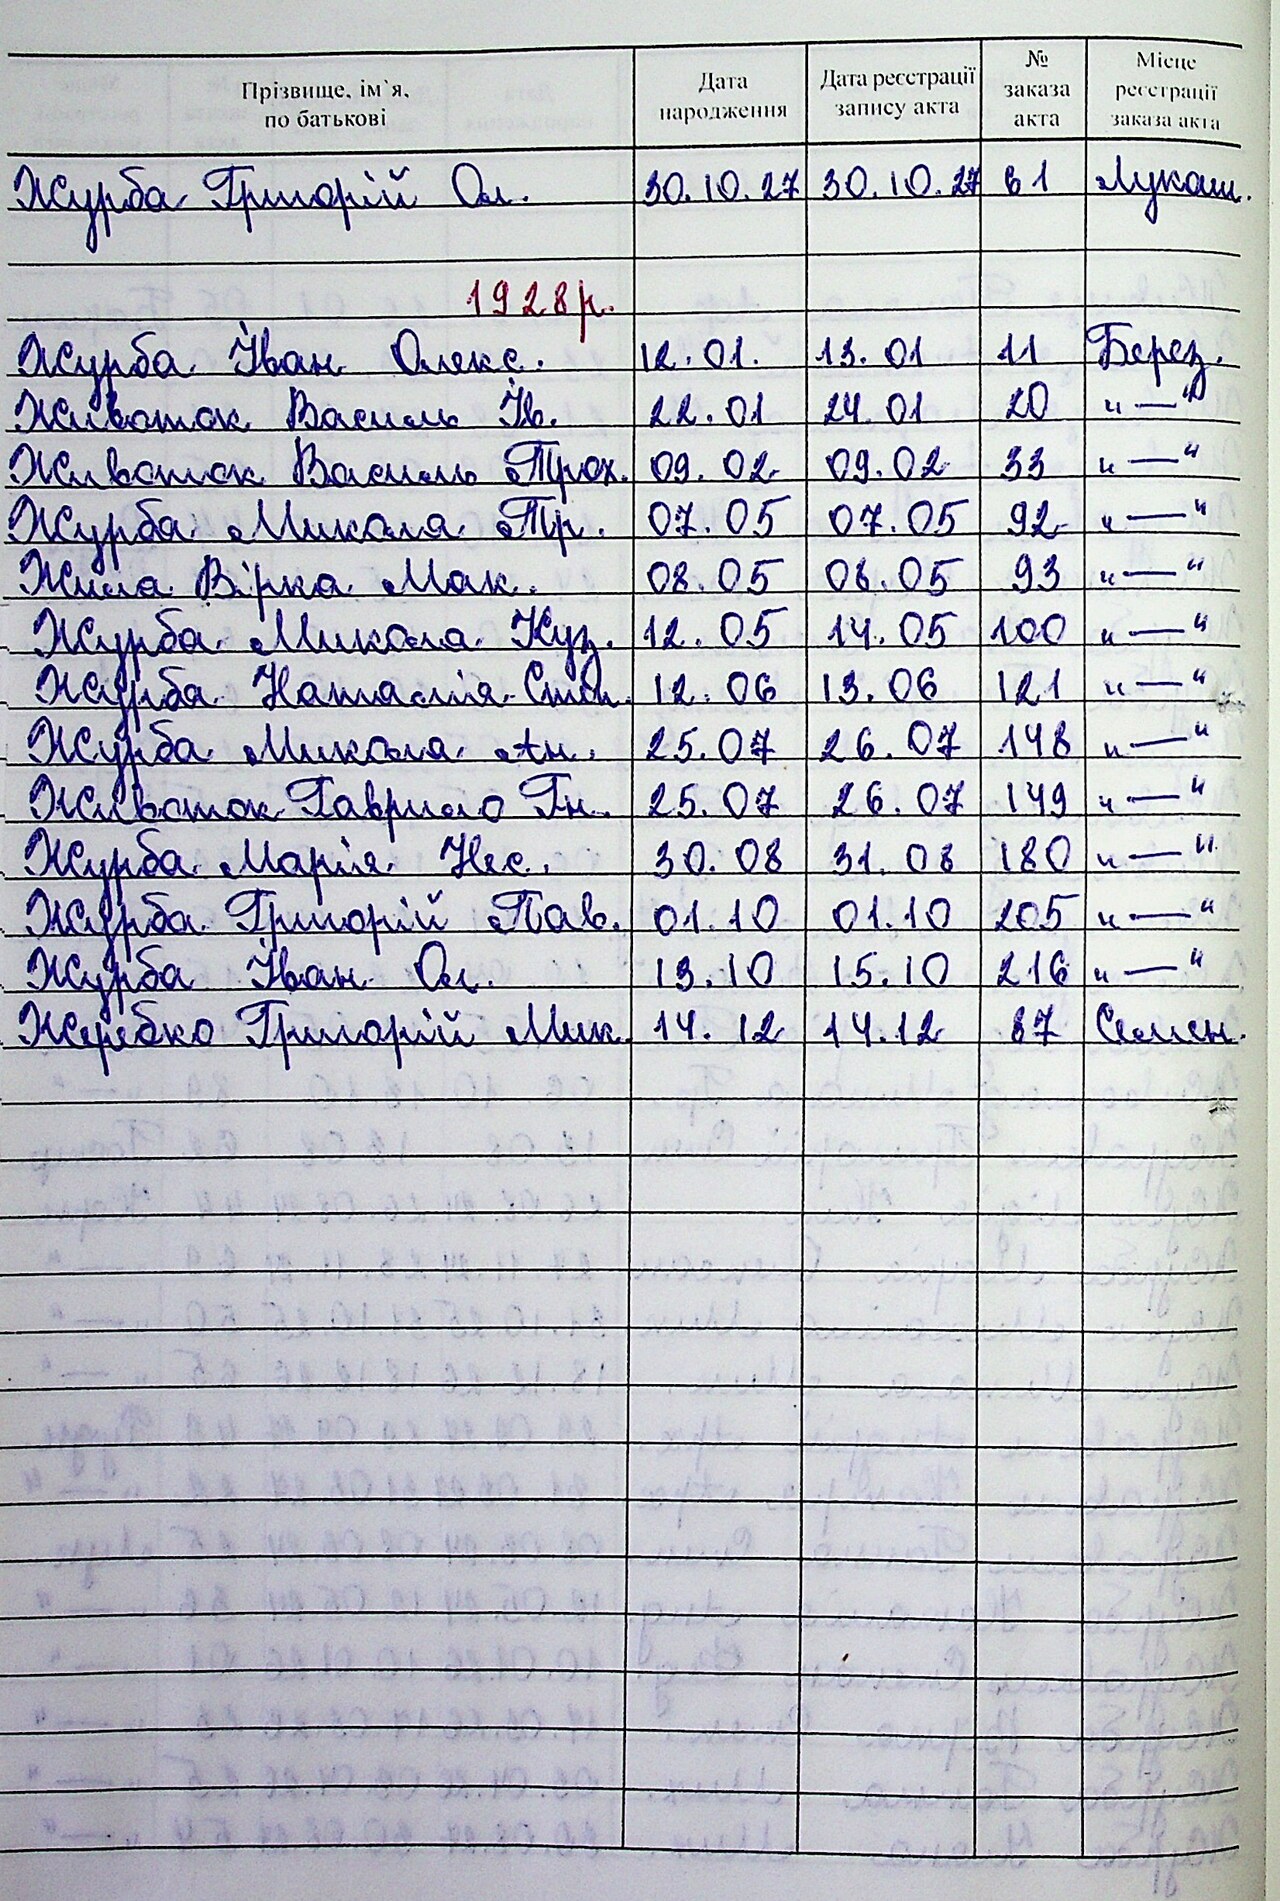 Прізвище, ім`я, по батькові Дата народження Дата реєстрації запису акта № заказа акта Місце реєстрації заказа акта
Журба Григорій Ол. 30.10.27 30.10.27 61 Лукаш.
1928р.
Журба Іван Олекс. 12.01. 13.01 11 Берез.
Животок Василь Ів. 22.01 24.01 20 "—"
Животок Василь Трох. 09.02 09.02 33 "—"
Журба Микола Тр. 07.05 07.05 92 "—"
Жила Вірка Мак. 08.05 08.05 93 "—"
Журба Микола Куз. 12.05 14.05 100 "—"
Журба Наталія Степ. 12.06 13.06 121 "—"
Журба Микола Ан. 25.07 26.07 148 "—"
Животок Гаврило Гн. 25.07 26.07 149 "—"
Журба Марія Нес. 30.08 31.08 180 "—"
Журба Григорій Пав. 01.10 01.10 205 "—"
Журба Іван Ол. 13.10 15.10 216 "—"
Жеребко Григорій Мик. 14.12 14.12 87 Семен.